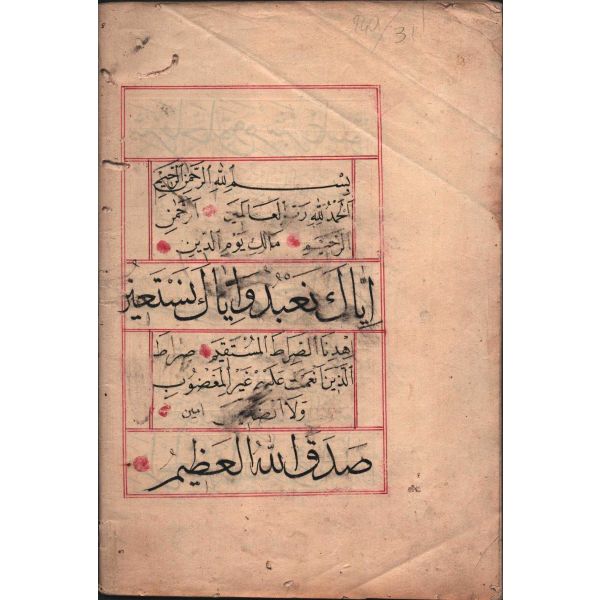 140/31
بسم الله الرحمن الرحيم
الحمد لله رب العالمين الرحمن
الرحيم مالك يوم الدين
اياك نعبد واياك نستعين
اهدنا الصراط المستقيم صراط
الذين انعمت عليهم غير المغضوب
ولا الضالين امين
صدق الله العظيم